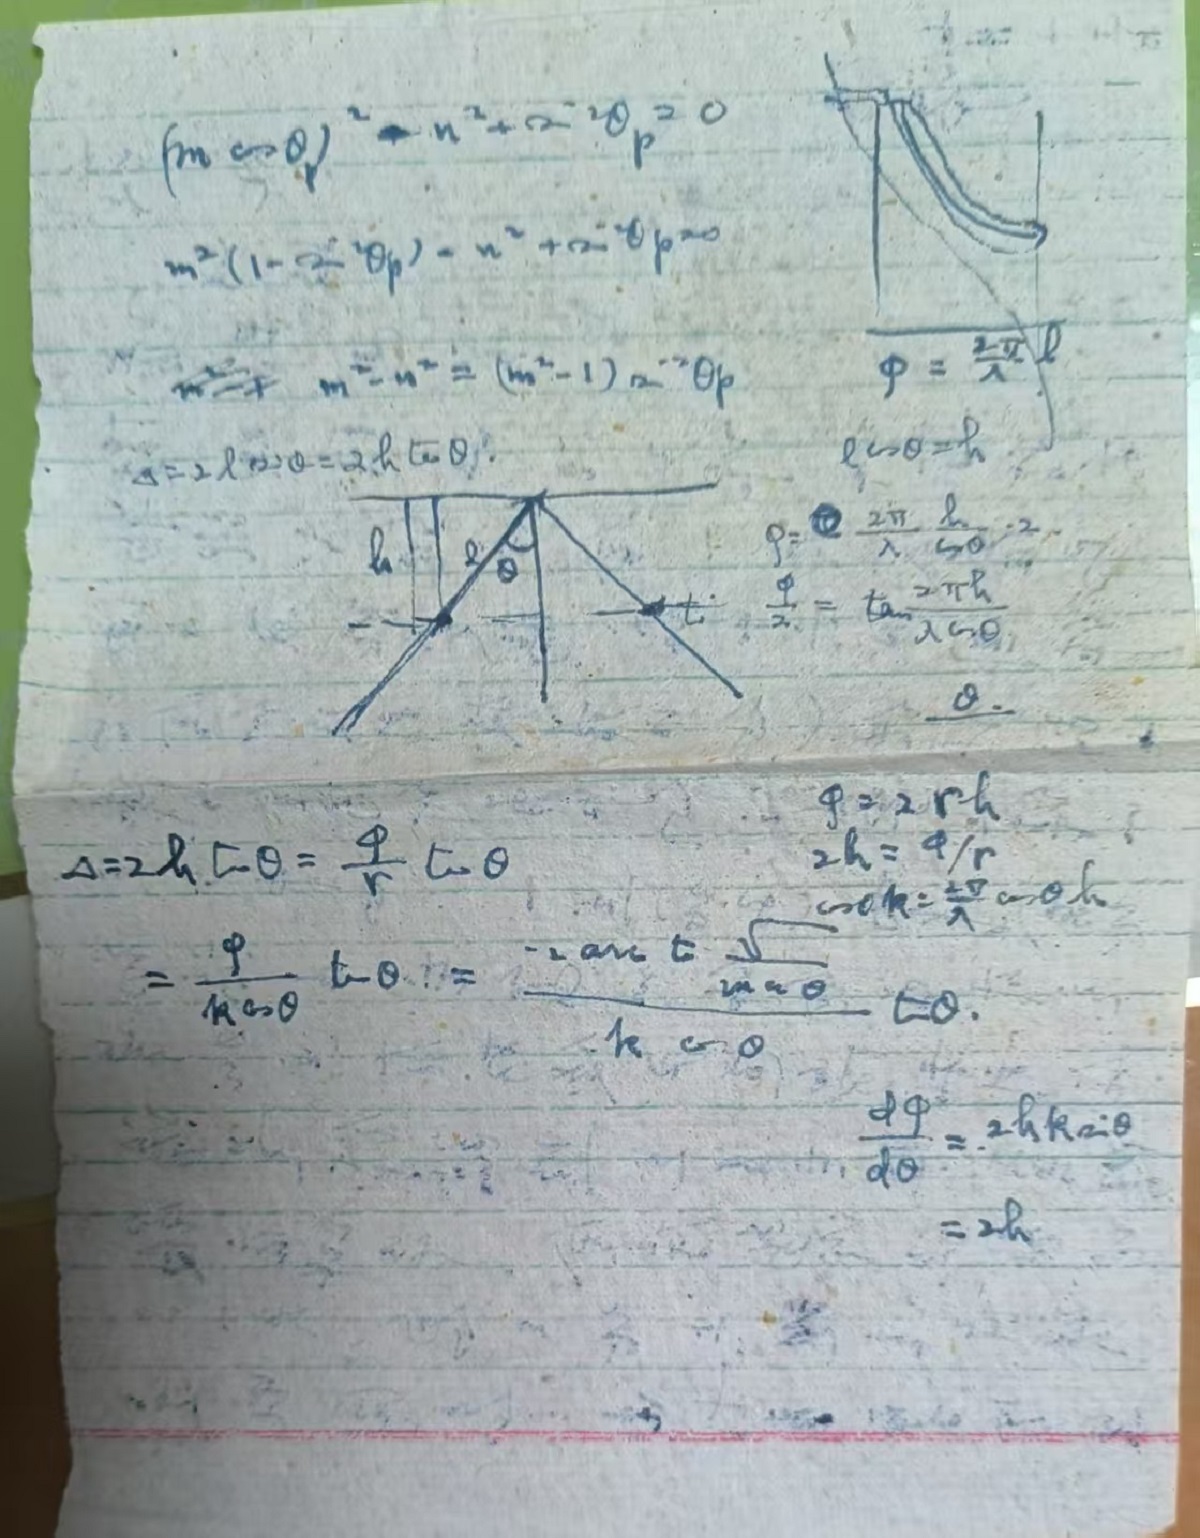 (m cos θp)² - n² + sin²θp = 0
m²(1 - sin²θp) - n² + sin²θp = 0
m² - n² = (m² - 1) sin²θp
φ = 2π/λ l
Δ = 2l sin θ = 2h tan θ.
l cos θ = h
h
l
θ
φ = 2π/λ h/cosθ · 2
φ/2 = tan 2πh/λcosθ
θ.
φ = 2rh
2h = φ/r
cosθ k = 2π/λ cosθ h
Δ = 2h tan θ = φ/r tan θ
= φ/k cosθ tan θ = -2 arc t √ / m cos θ / k cos θ tan θ.
dφ/dθ = 2hk sin θ
= 2h